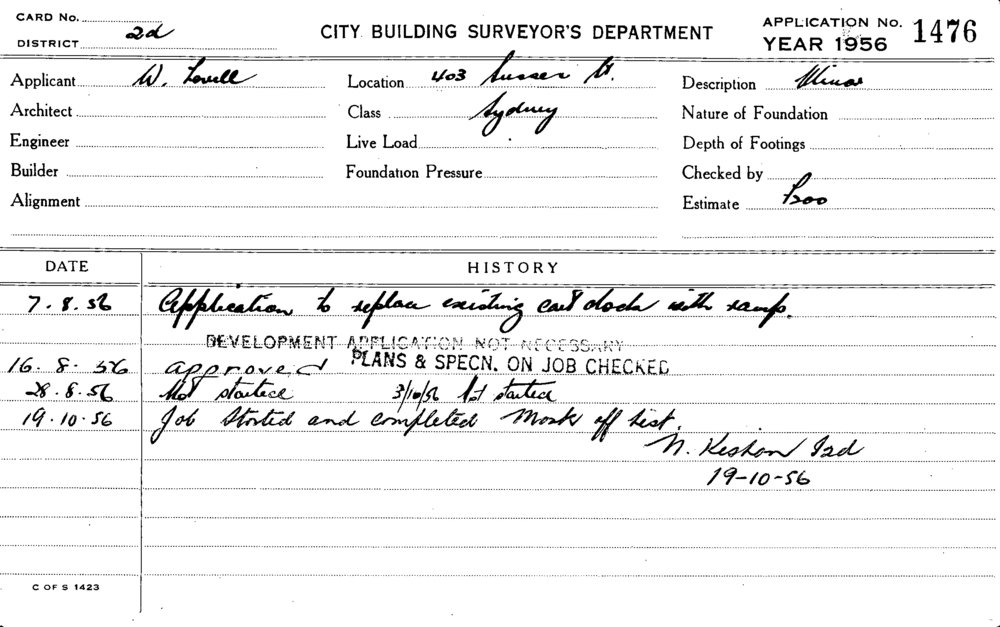 CARD No.
DISTRICT 2d
CITY BUILDING SURVEYOR'S DEPARTMENT
APPLICATION No. 1476
YEAR 1956
Applicant W. Lovell
Location 403 Sussex St.
Description Minor
Architect
Class Sydney
Nature of Foundation
Engineer
Live Load
Depth of Footings
Builder
Foundation Pressure
Checked by
Alignment
Estimate £200
DATE HISTORY
7.8.56 Application to replace existing cart dock with ramp.
DEVELOPMENT APPLICATION NOT NECESSARY
PLANS & SPECN. ON JOB CHECKED
16.8.56 approved
28.8.56 Not started 3/10/56 Not started
19.10.56 Job Started and completed Mark off list.
N.
19-10-56
C OF S 1423